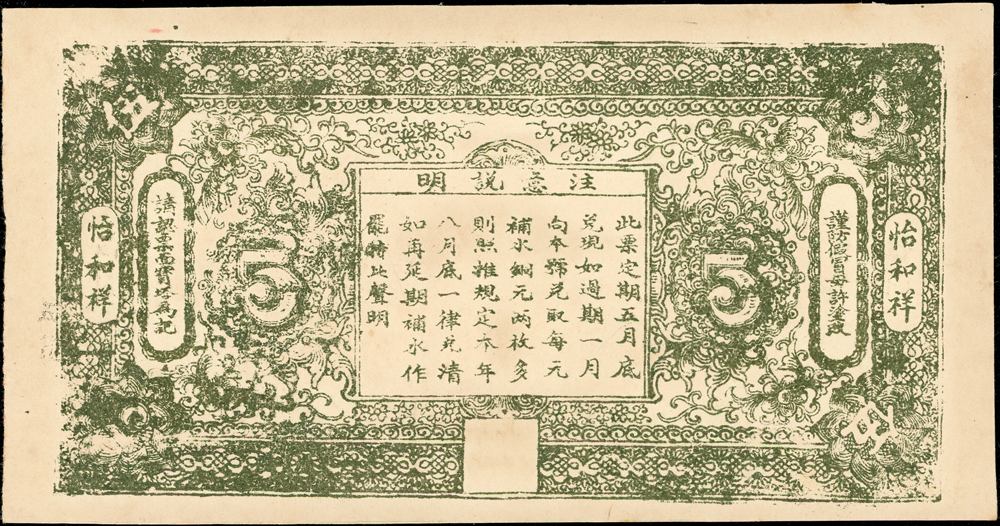 伍
5
怡和祥
謹防假冒毋許塗改
5
注意說明
此票定期五月底
兌現如過期一月
向本號兌取每元
補水銅元兩枚多
則照推規定本年
八月底一律兌清
如再延期補水作
罷特此聲明
5
請認票面寶塔為記
怡和祥
伍